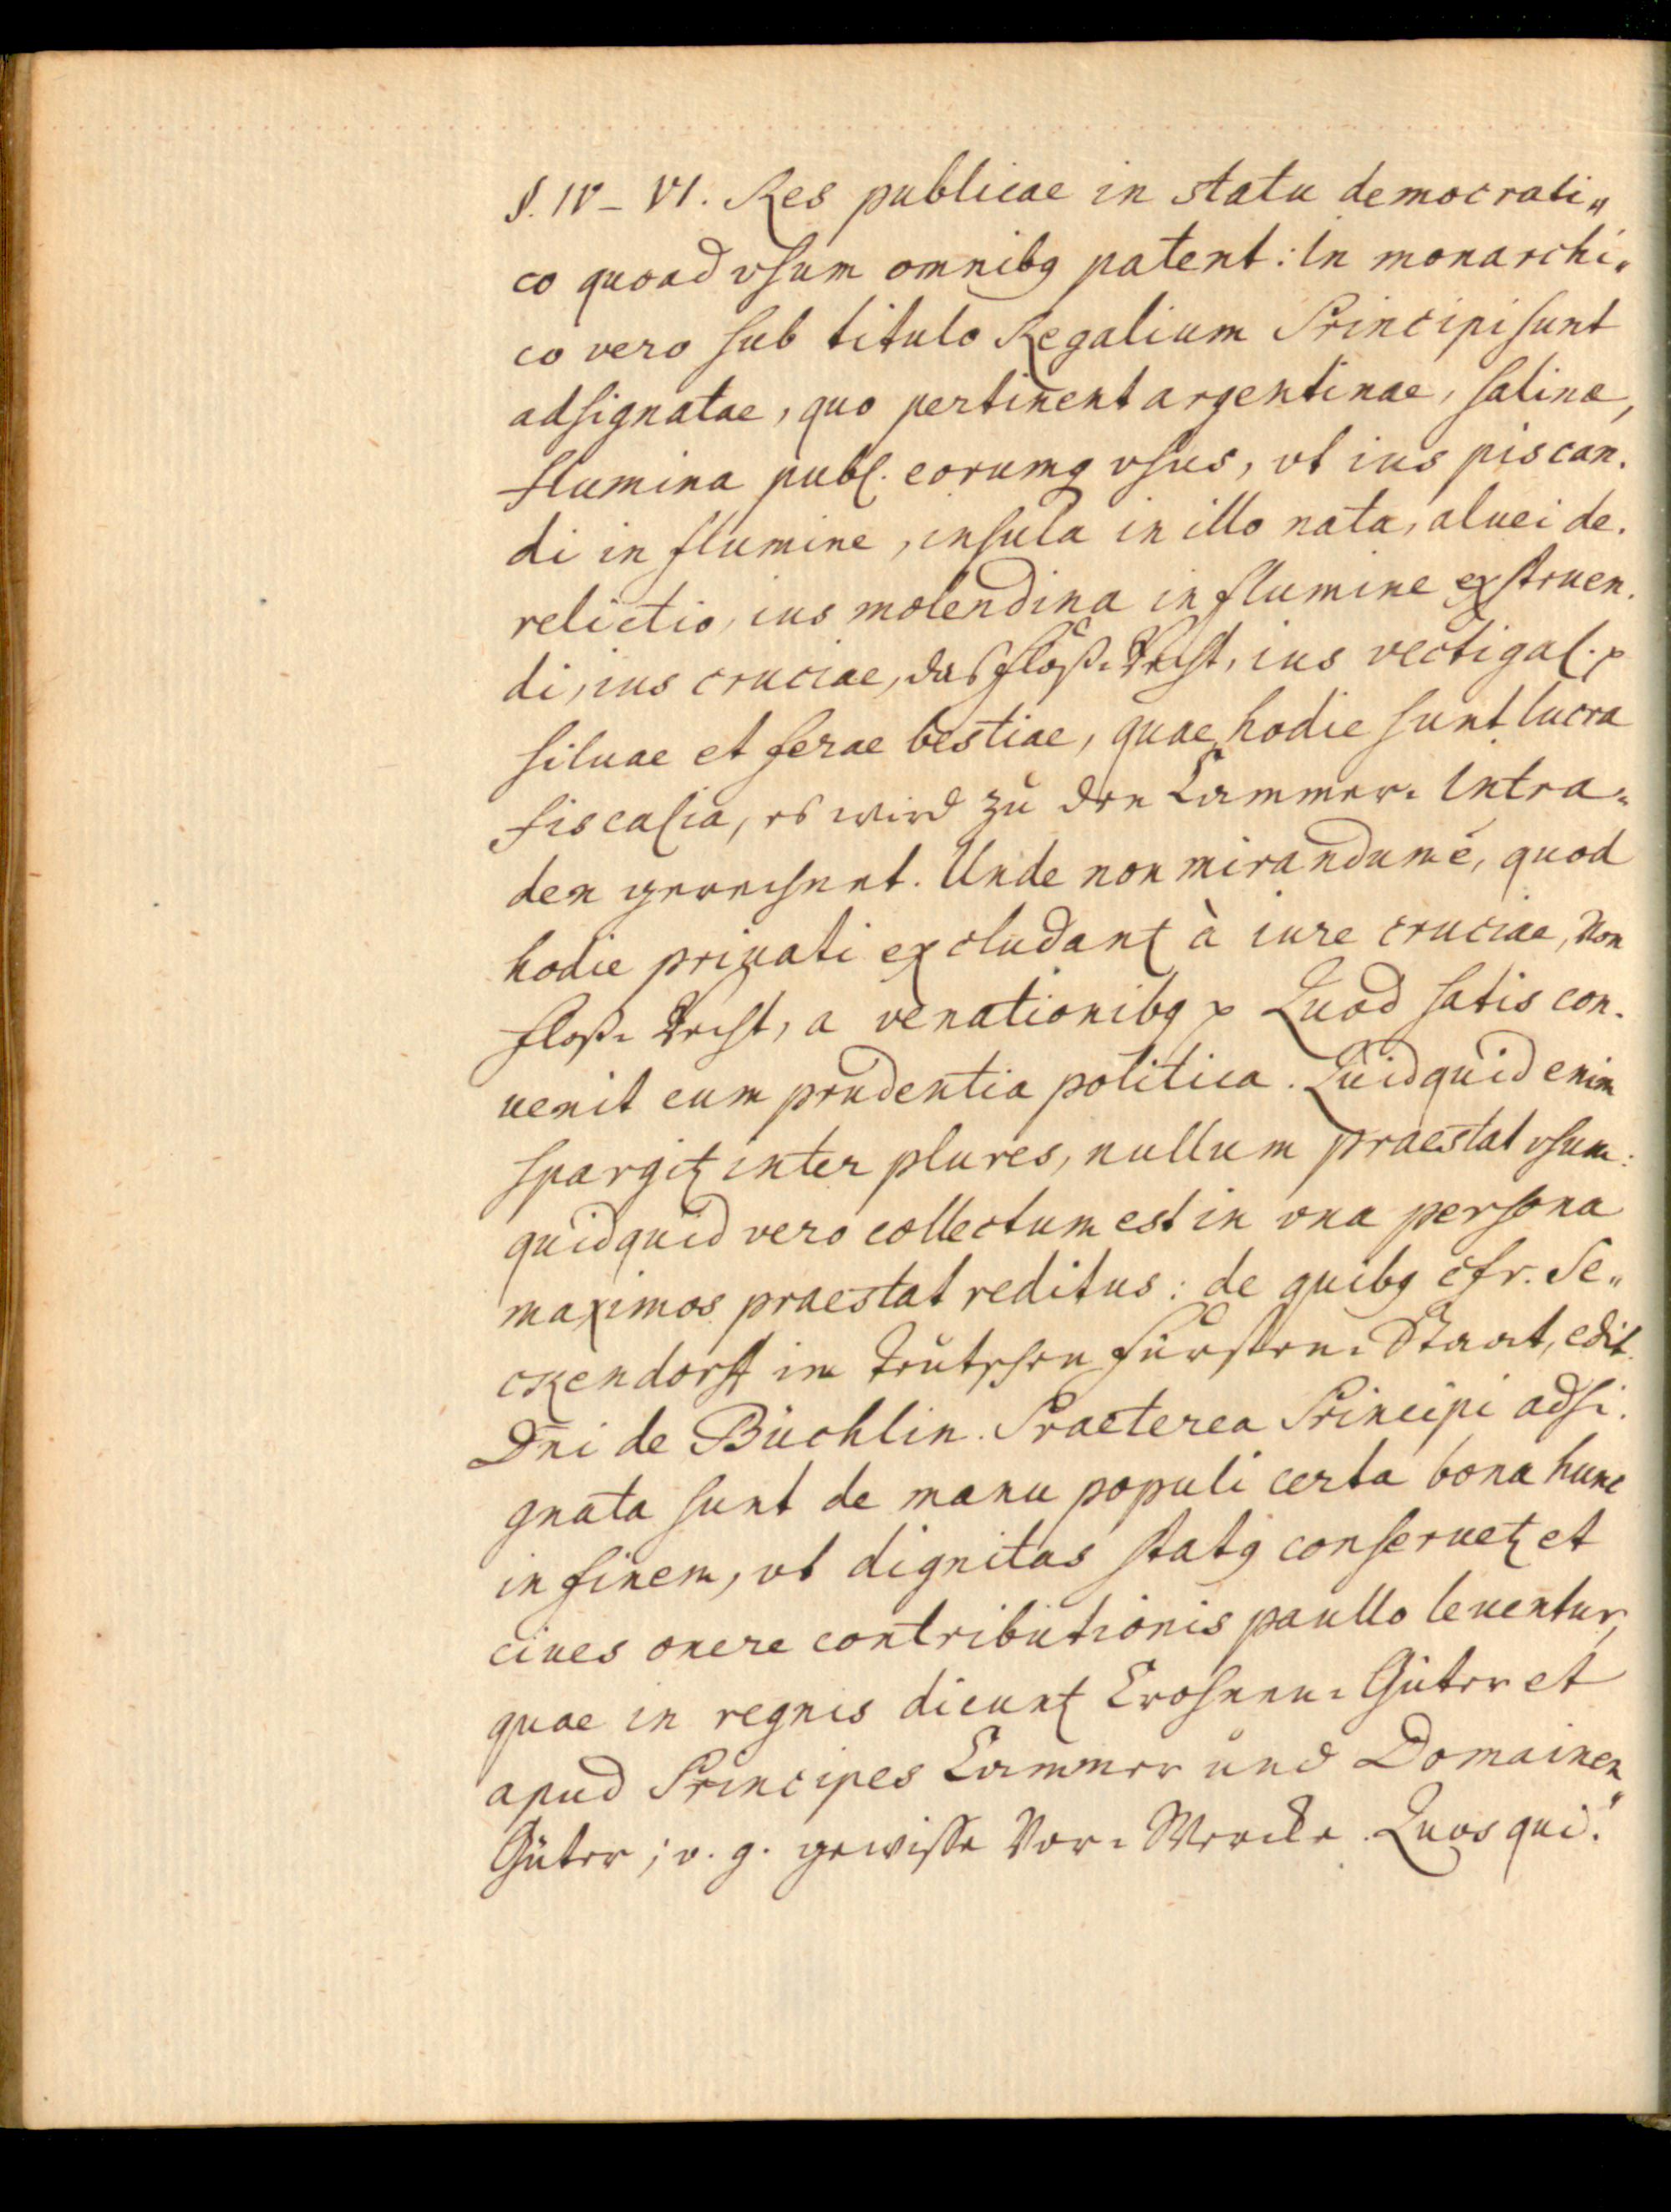 §. IV – VI. Res publicae in statu democrati„
co quoad vsum omnibꝗ patent: In monarchi„
co vero sub titulo Regalium Principi sunt
adsignatae, quo pertinent argentinae, salinæ,
flumina publ. eorumꝗ vsus, vt ius piscan.
di in flumine, insula in illo nata, aluei de.
relictio, ius molendina in flumine exstruen.
di, ius cruciae, das Floß⸗Recht, ius vectigal. p
siluae et ferae bestiae, quae hodie sunt lucra
fiscalia, es wird zu den Cammer⸗Intra⸗
den gerechnet. Unde non mirandum ē, quod
hodie priuati excludantꝭ à iure cruciae, von
Floß⸗Recht, a venationibꝗ p Quod satis con.
uenit cum prudentia politica. Quidquid enim
spargitꝭ inter plures, nullum praestat vsum:
quidquid vero collectum est in vna persona
maximos praestat reditus: de quibꝗ cfr. Se„
ckendorff im Teutschen Fürsten⸗Staat, edit.
Dn̄i de Büchlin. Praeterea Principi adsi.
gnata sunt de manu populi certa bona hunc
in finem, vt dignitas statꝗ conseruetꝭ et
ciues onere contributionis paullo leuentur,
quae in regnis dicuntꝭ Crohnen⸗Güter et
apud Principes Cammer und Domainen
Güter; v. g. gewisse Vor⸗Wercke. Quos qui„